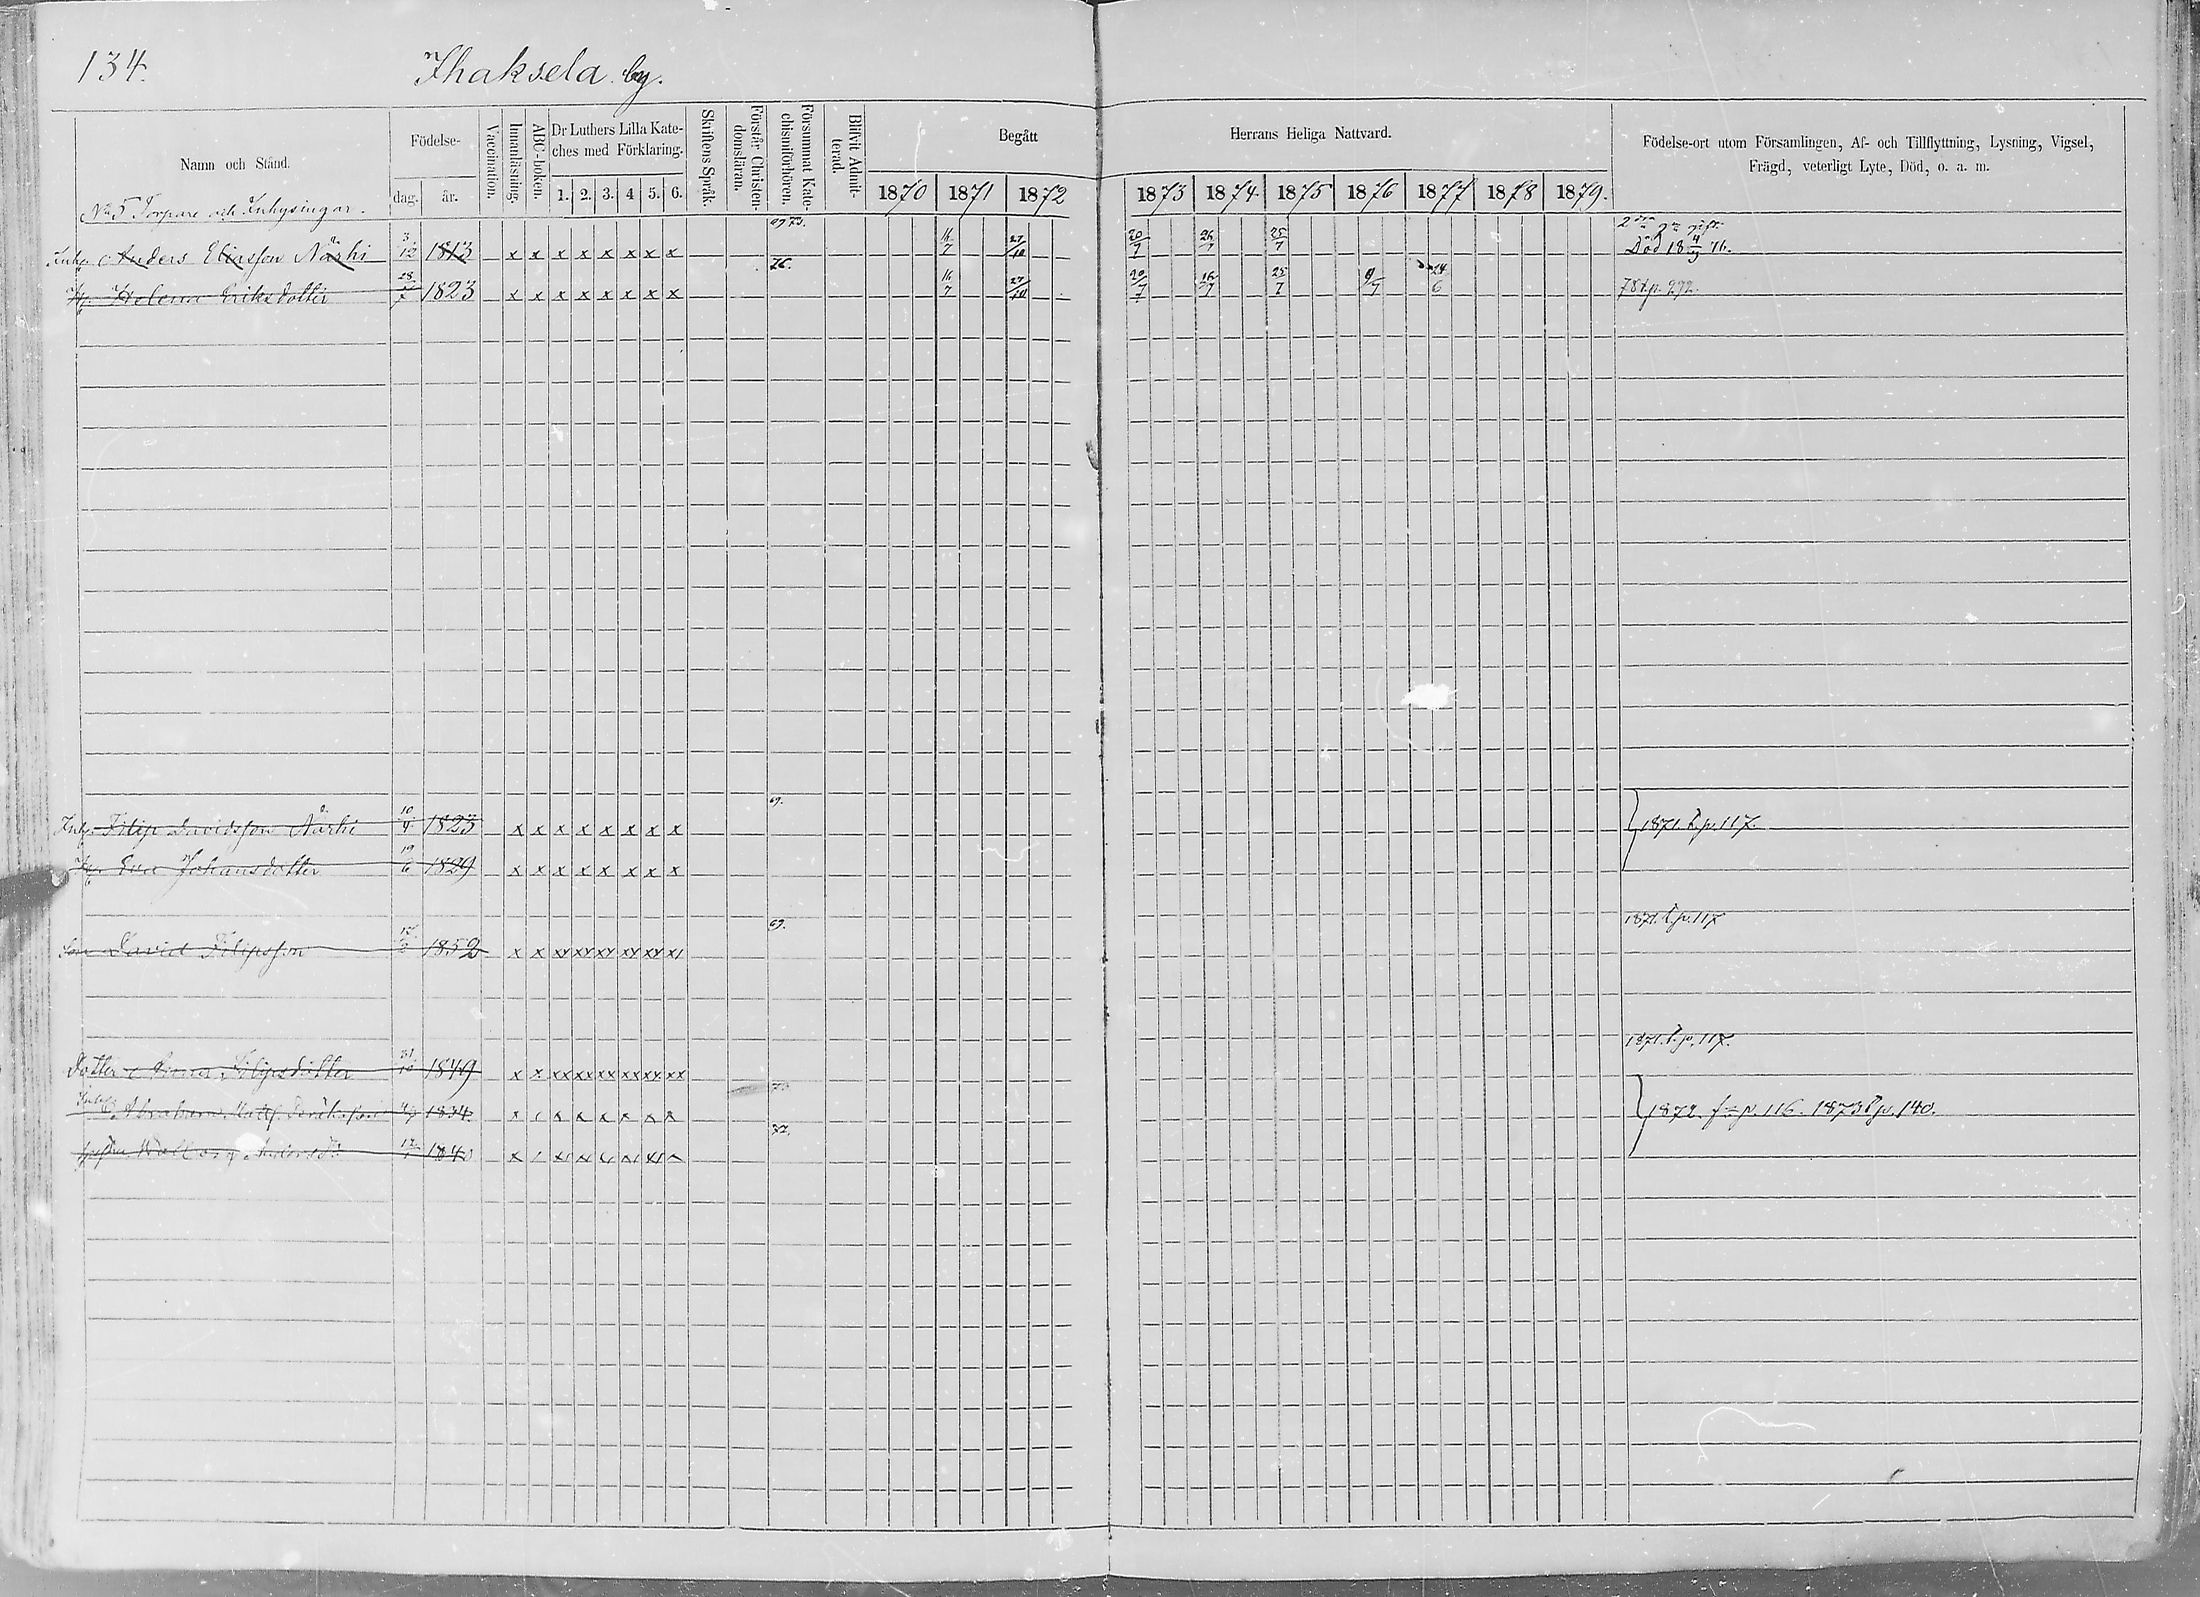 134. Ihaksela by.
Namn och Stånd.
Födelse-
dag. år.
Vaccination.
Innanläsning.
ABC-boken.
Dr Luthers Lilla Kate-
ches med Förklaring.
1. 2. 3. 4 5. 6.
Skriftens Språk.
Förstår Christen-
domsläran.
Försummat Kate-
chismiförhören.
Blifvit Admit-
terad.
Begått Herrans Heliga Nattvard.
1870 1871 1872 1873 1874 1875 1876 1877 1878 1879.
Födelse-ort utom Församlingen, Af- och Tillflyttning, Lysning, Vigsel,
Frägd, veterligt Lyte, Död, o. a. m.
No 5 Torpare och Inhysingar.
Anders Eliasson Närhi 3/12 1813 x x x x x x x x 16/7 27/10 20/7 26/7 25/7 Död 18 4/9 76.
Hu. Helena Eriksdotter 28/7 1823 x x x x x x x x 76. 16/7 27/10 20/7 16/7 25/7 9/7 24/6 78 t.p. 292.
Inhs. Filip Davidsson Närhi 10/4 1823 x x x x x x x x 69. 1871. t.p. 117.
Hu. Eva Johansdotter 19/6 1829 x x x x x x x x
Son David Filipsson 1852 x x xx xx xx xx xx xx 69. 1871. t.p. 117
Dotter Filipsdotter 31/10 1849 x x xx xx xx xx xx xx 1871. t.p. 117.
Abraham 1834 1872 p. 116. 1873 t.p. 140.
Wallborg Andersdr 1840 72.